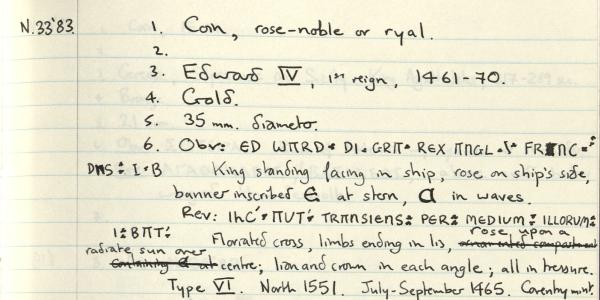 N.33'83. 1. Coin, rose-noble or ryal.
2.
3. Edward IV, 1st reign, 1461-70.
4. Gold.
5. 35 mm. diameter.
6. Obv: ED WARD DI GRA REX ANGL FRANC
DNS I B King standing facing in ship, rose on ship's side,
banner inscribed E at stern, C in waves.
Rev: IhC AUT TRANSIENS PER MEDIUM ILLORUM
I BAT Floriated cross, limbs ending in lis, rose upon a
radiate sun over centre; lion and crown in each angle; all in tressure.
Type VI. North 1551. July-September 1465. Coventry mint.